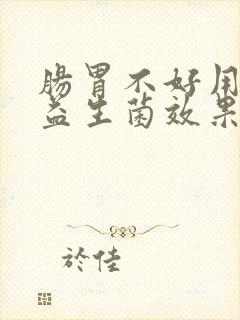 腸胃不好用
益生菌效果
於佳